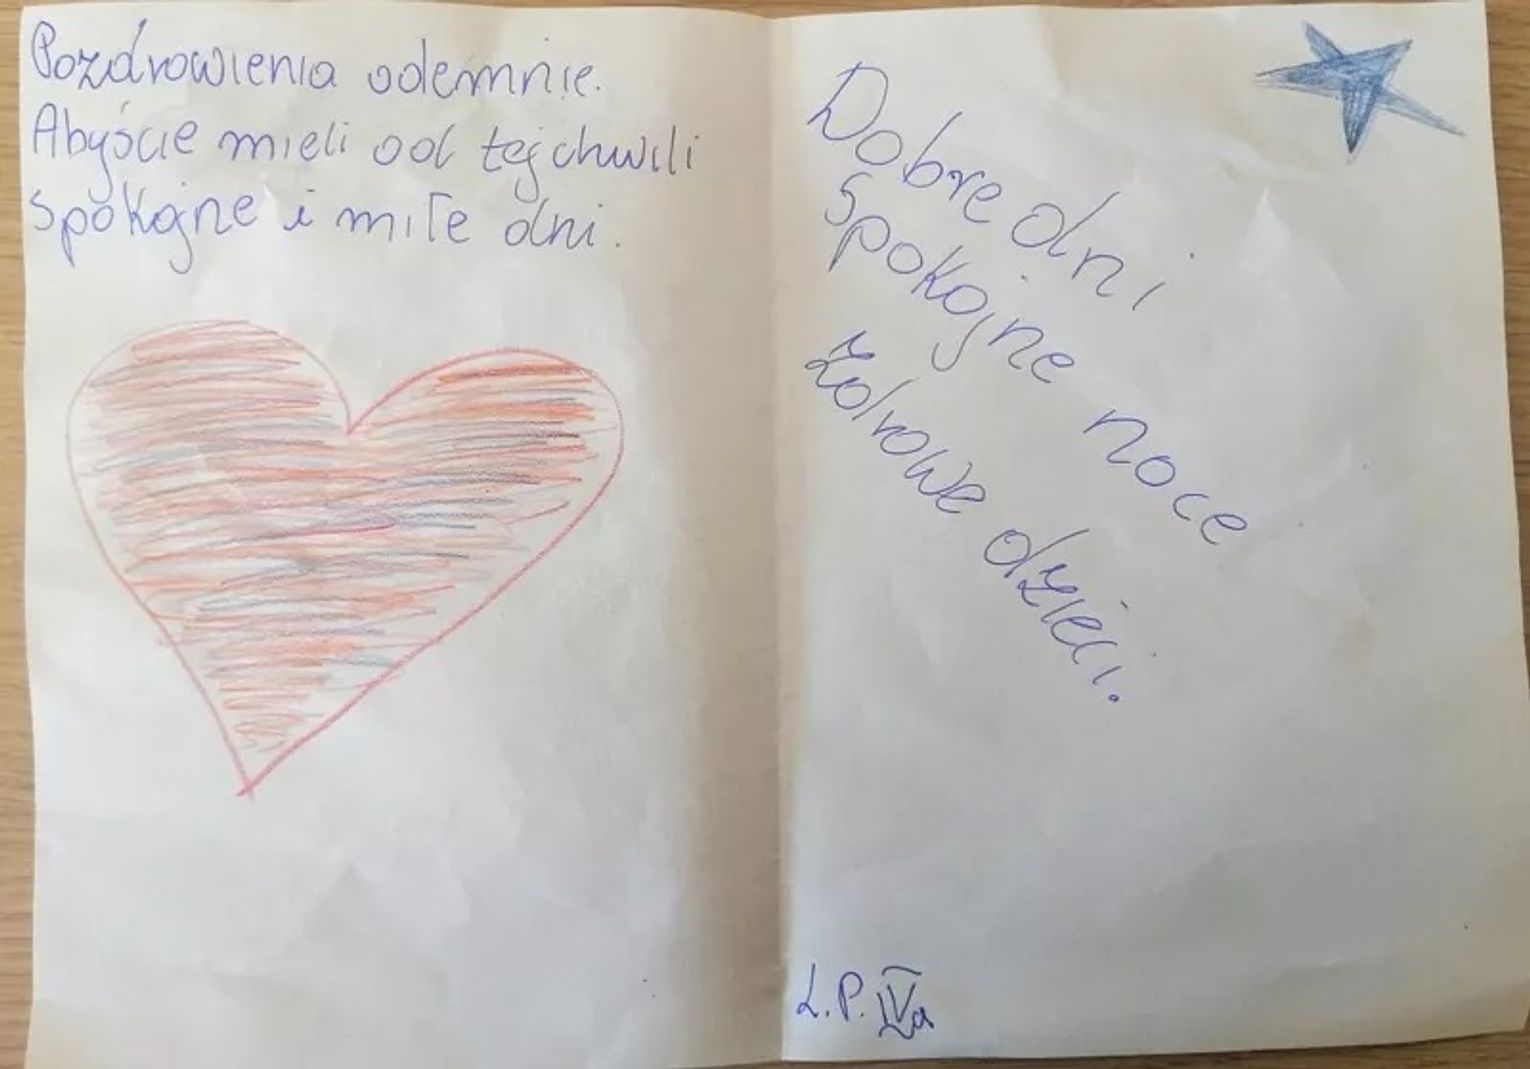 Pozdrowienia odemnie.
Abyście mieli od tej chwili
spokojne i miłe dni.
Dobre dni
Spokojne noce
Zdrowe dzieci.
L.P. IVa